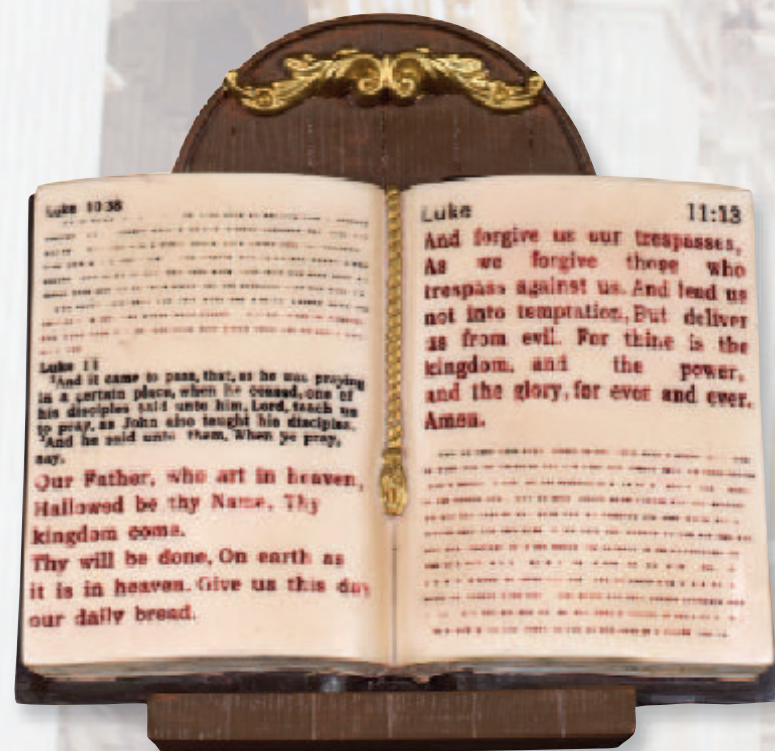 Luke 10:38
Luke 11
¹And it came to pass, that, as he was praying
in a certain place, when he ceased, one of
his disciples said unto him, Lord, teach us
to pray, as John also taught his disciples.
²And he said unto them, When ye pray,
say,
Our Father, who art in heaven,
Hallowed be thy Name, Thy
kingdom come.
Thy will be done, On earth as
it is in heaven. Give us this day
our daily bread.
Luke 11:13
And forgive us our trespasses,
As we forgive those who
trespass against us. And lead us
not into temptation, But deliver
us from evil. For thine is the
kingdom, and the power,
and the glory, for ever and ever.
Amen.